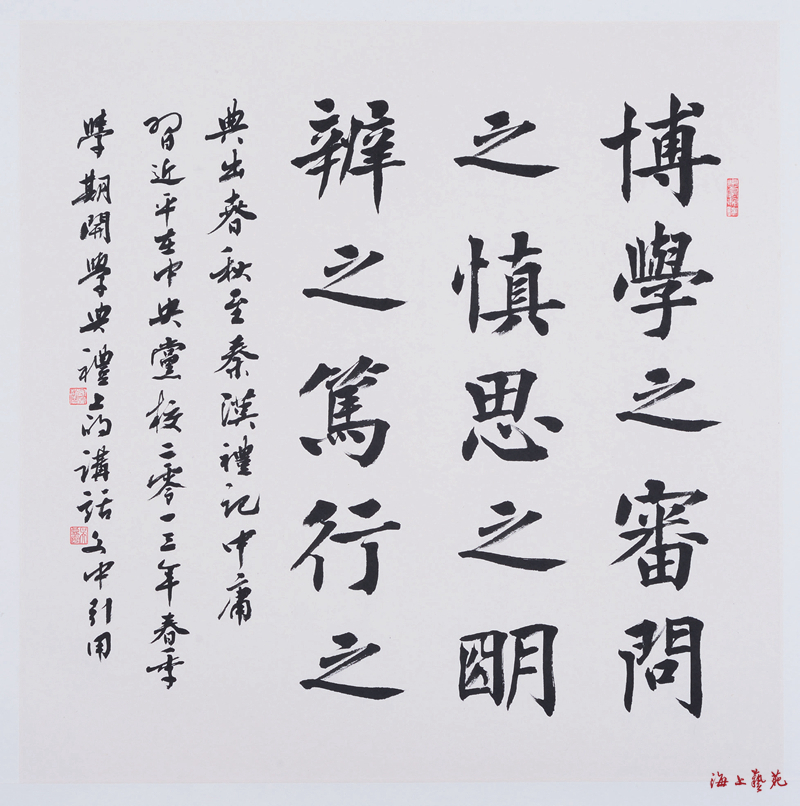 博學之審問
之慎思之明
辨之篤行之
典出春秋至秦漢禮記中庸
習近平在中央黨校二零一三年春季
學期開學典禮上的講話文中引用
海上藝苑